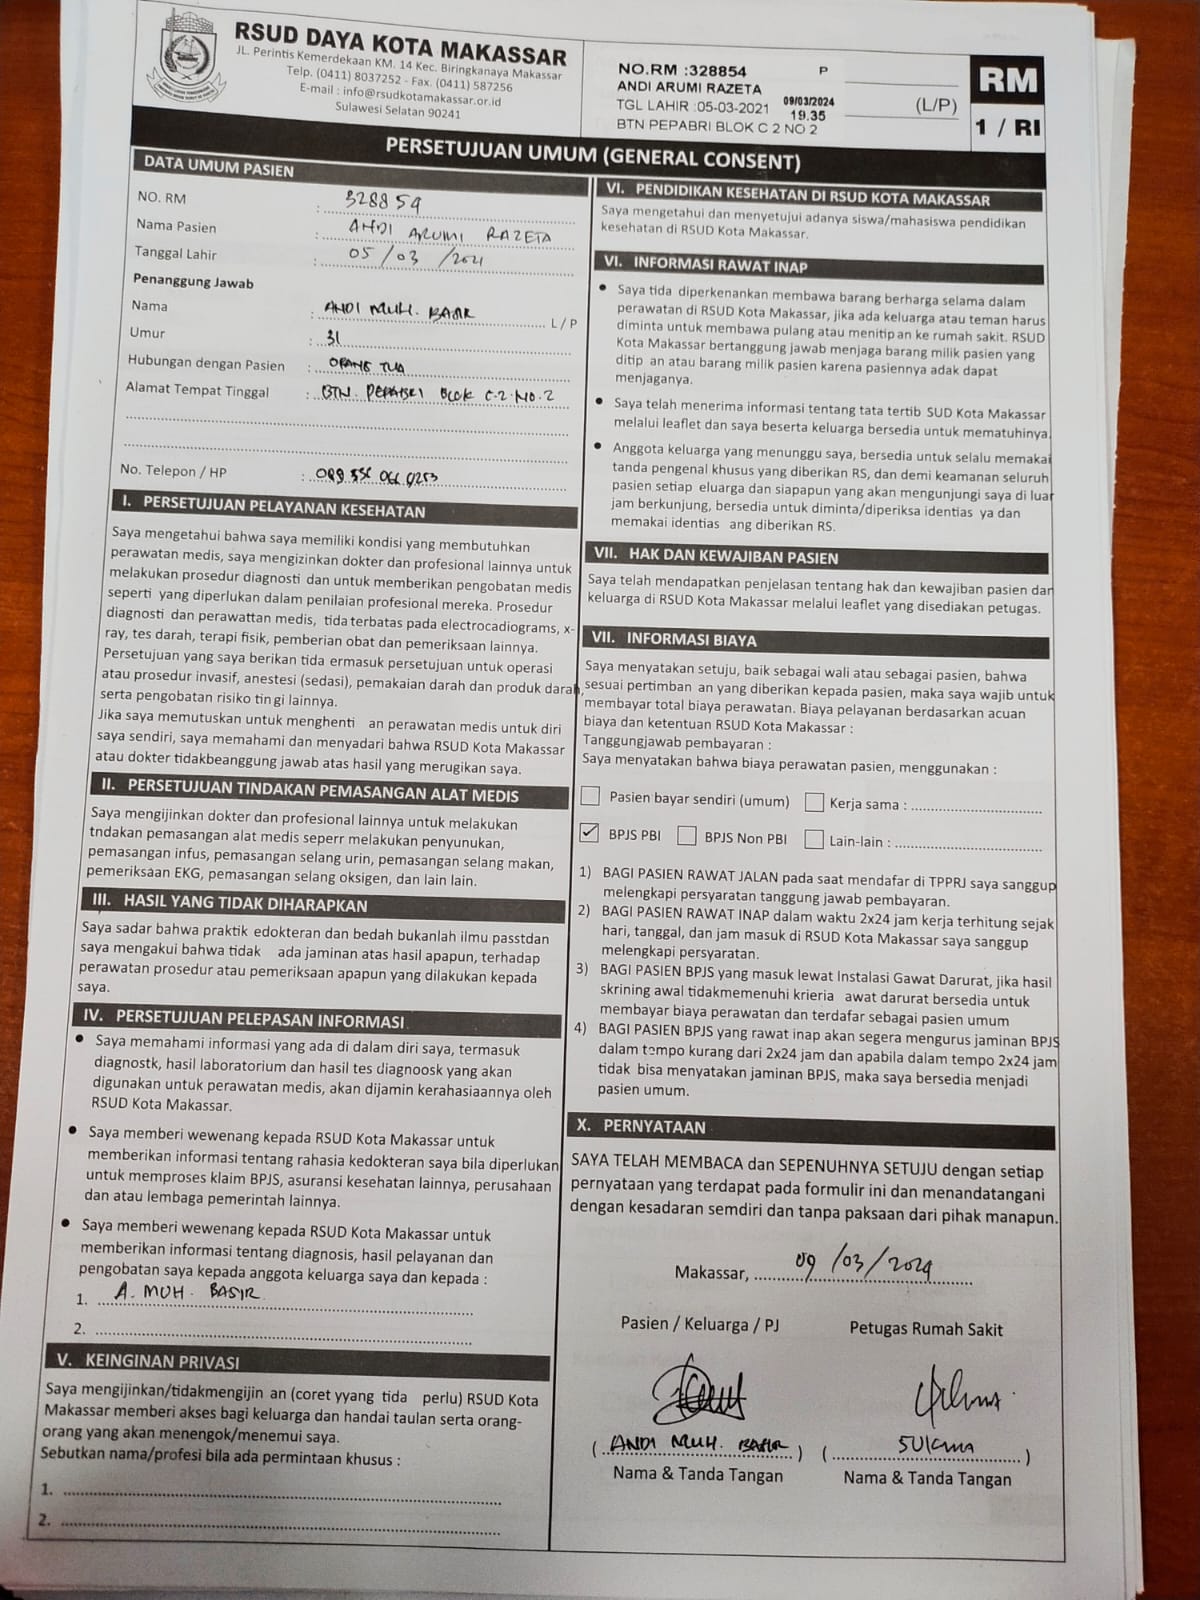 RSUD DAYA KOTA MAKASSAR
JL. Perintis Kemerdekaan KM. 14 Kec. Biringkanaya Makassar
Telp. (0411) 8037252 - Fax. (0411) 587256
E-mail : info@rsudkotamakassar.or.id
Sulawesi Selatan 90241
NO.RM :328854 P
ANDI ARUMI RAZETA
TGL LAHIR :05-03-2021 09/03/2024 19.35
BTN PEPABRI BLOK C 2 NO 2
(L/P)
RM
1 / RI
PERSETUJUAN UMUM (GENERAL CONSENT)
DATA UMUM PASIEN
NO. RM : 328854
Nama Pasien : ANDI ARUMI RAZETA
Tanggal Lahir : 05/03/2021
Penanggung Jawab
Nama : ANDI MUH. BASIR L / P
Umur : 31
Hubungan dengan Pasien : ORANG TUA
Alamat Tempat Tinggal : BTN. PEPABRI BLOK C.2.NO.2
No. Telepon / HP :
I. PERSETUJUAN PELAYANAN KESEHATAN
Saya mengetahui bahwa saya memiliki kondisi yang membutuhkan
perawatan medis, saya mengizinkan dokter dan profesional lainnya untuk
melakukan prosedur diagnosti dan untuk memberikan pengobatan medis
seperti yang diperlukan dalam penilaian profesional mereka. Prosedur
diagnosti dan perawattan medis, tida terbatas pada electrocadiograms, x-
ray, tes darah, terapi fisik, pemberian obat dan pemeriksaan lainnya.
Persetujuan yang saya berikan tida ermasuk persetujuan untuk operasi
atau prosedur invasif, anestesi (sedasi), pemakaian darah dan produk darah,
serta pengobatan risiko tin gi lainnya.
Jika saya memutuskan untuk menghenti an perawatan medis untuk diri
saya sendiri, saya memahami dan menyadari bahwa RSUD Kota Makassar
atau dokter tidakbeanggung jawab atas hasil yang merugikan saya.
II. PERSETUJUAN TINDAKAN PEMASANGAN ALAT MEDIS
Saya mengijinkan dokter dan profesional lainnya untuk melakukan
tndakan pemasangan alat medis seperr melakukan penyunukan,
pemasangan infus, pemasangan selang urin, pemasangan selang makan,
pemeriksaan EKG, pemasangan selang oksigen, dan lain lain.
III. HASIL YANG TIDAK DIHARAPKAN
Saya sadar bahwa praktik edokteran dan bedah bukanlah ilmu passtdan
saya mengakui bahwa tidak ada jaminan atas hasil apapun, terhadap
perawatan prosedur atau pemeriksaan apapun yang dilakukan kepada
saya.
IV. PERSETUJUAN PELEPASAN INFORMASI
• Saya memahami informasi yang ada di dalam diri saya, termasuk
diagnostk, hasil laboratorium dan hasil tes diagnoosk yang akan
digunakan untuk perawatan medis, akan dijamin kerahasiaannya oleh
RSUD Kota Makassar.
• Saya memberi wewenang kepada RSUD Kota Makassar untuk
memberikan informasi tentang rahasia kedokteran saya bila diperlukan
untuk memproses klaim BPJS, asuransi kesehatan lainnya, perusahaan
dan atau lembaga pemerintah lainnya.
• Saya memberi wewenang kepada RSUD Kota Makassar untuk
memberikan informasi tentang diagnosis, hasil pelayanan dan
pengobatan saya kepada anggota keluarga saya dan kepada :
1. A. MUH. BASIR
2.
V. KEINGINAN PRIVASI
Saya mengijinkan/tidakmengijin an (coret yyang tida perlu) RSUD Kota
Makassar memberi akses bagi keluarga dan handai taulan serta orang-
orang yang akan menengok/menemui saya.
Sebutkan nama/profesi bila ada permintaan khusus :
1.
2.
VI. PENDIDIKAN KESEHATAN DI RSUD KOTA MAKASSAR
Saya mengetahui dan menyetujui adanya siswa/mahasiswa pendidikan
kesehatan di RSUD Kota Makassar.
VI. INFORMASI RAWAT INAP
• Saya tida diperkenankan membawa barang berharga selama dalam
perawatan di RSUD Kota Makassar, jika ada keluarga atau teman harus
diminta untuk membawa pulang atau menitip an ke rumah sakit. RSUD
Kota Makassar bertanggung jawab menjaga barang milik pasien yang
ditip an atau barang milik pasien karena pasiennya adak dapat
menjaganya.
• Saya telah menerima informasi tentang tata tertib SUD Kota Makassar
melalui leaflet dan saya beserta keluarga bersedia untuk mematuhinya.
• Anggota keluarga yang menunggu saya, bersedia untuk selalu memakai
tanda pengenal khusus yang diberikan RS, dan demi keamanan seluruh
pasien setiap eluarga dan siapapun yang akan mengunjungi saya di luar
jam berkunjung, bersedia untuk diminta/diperiksa identias ya dan
memakai identias ang diberikan RS.
VII. HAK DAN KEWAJIBAN PASIEN
Saya telah mendapatkan penjelasan tentang hak dan kewajiban pasien dan
keluarga di RSUD Kota Makassar melalui leaflet yang disediakan petugas.
VII. INFORMASI BIAYA
Saya menyatakan setuju, baik sebagai wali atau sebagai pasien, bahwa
sesuai pertimban an yang diberikan kepada pasien, maka saya wajib untuk
membayar total biaya perawatan. Biaya pelayanan berdasarkan acuan
biaya dan ketentuan RSUD Kota Makassar :
Tanggungjawab pembayaran :
Saya menyatakan bahwa biaya perawatan pasien, menggunakan :
Pasien bayar sendiri (umum) Kerja sama :
✓ BPJS PBI BPJS Non PBI Lain-lain :
1) BAGI PASIEN RAWAT JALAN pada saat mendafar di TPPRJ saya sanggup
melengkapi persyaratan tanggung jawab pembayaran.
2) BAGI PASIEN RAWAT INAP dalam waktu 2x24 jam kerja terhitung sejak
hari, tanggal, dan jam masuk di RSUD Kota Makassar saya sanggup
melengkapi persyaratan.
3) BAGI PASIEN BPJS yang masuk lewat Instalasi Gawat Darurat, jika hasil
skrining awal tidakmemenuhi krieria awat darurat bersedia untuk
membayar biaya perawatan dan terdafar sebagai pasien umum
4) BAGI PASIEN BPJS yang rawat inap akan segera mengurus jaminan BPJS
dalam tempo kurang dari 2x24 jam dan apabila dalam tempo 2x24 jam
tidak bisa menyatakan jaminan BPJS, maka saya bersedia menjadi
pasien umum.
X. PERNYATAAN
SAYA TELAH MEMBACA dan SEPENUHNYA SETUJU dengan setiap
pernyataan yang terdapat pada formulir ini dan menandatangani
dengan kesadaran semdiri dan tanpa paksaan dari pihak manapun.
Makassar, 09/03/2024
Pasien / Keluarga / PJ Petugas Rumah Sakit
( ANDI MUH. BASIR ) ( SUKMA )
Nama & Tanda Tangan Nama & Tanda Tangan